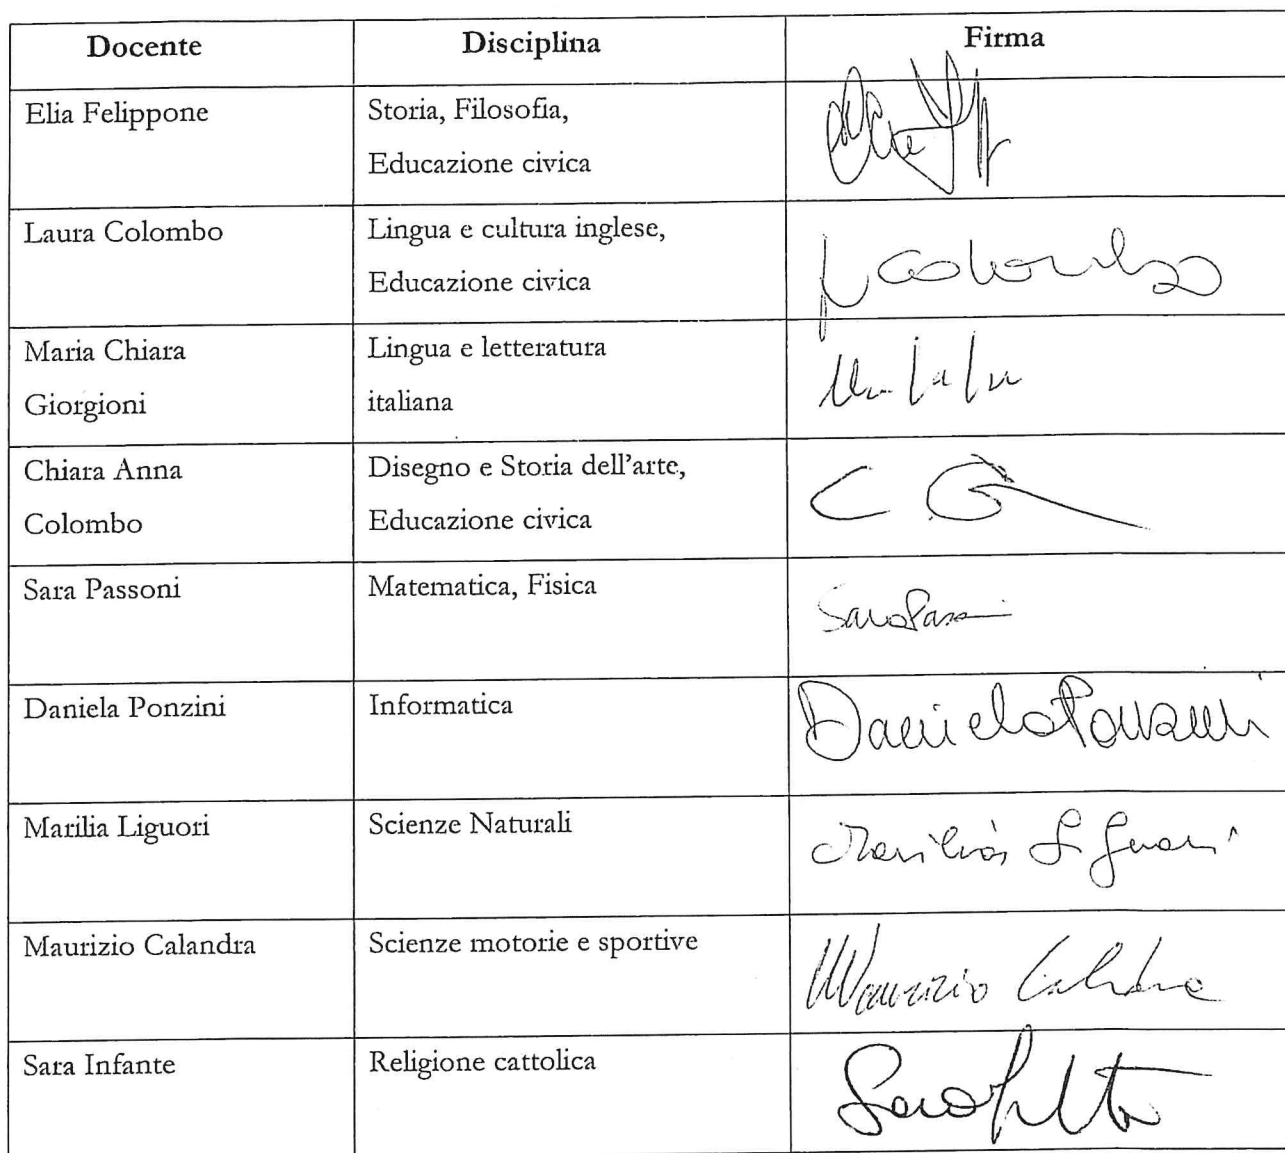 Docente Disciplina Firma
Elia Felippone Storia, Filosofia,
Educazione civica
Laura Colombo Lingua e cultura inglese,
Educazione civica
Maria Chiara Lingua e letteratura
Giorgioni italiana
Chiara Anna Disegno e Storia dell'arte,
Colombo Educazione civica
Sara Passoni Matematica, Fisica
Daniela Ponzini Informatica Daniela
Marilia Liguori Scienze Naturali Marilia Liguori
Maurizio Calandra Scienze motorie e sportive Maurizio Calandra
Sara Infante Religione cattolica Sara